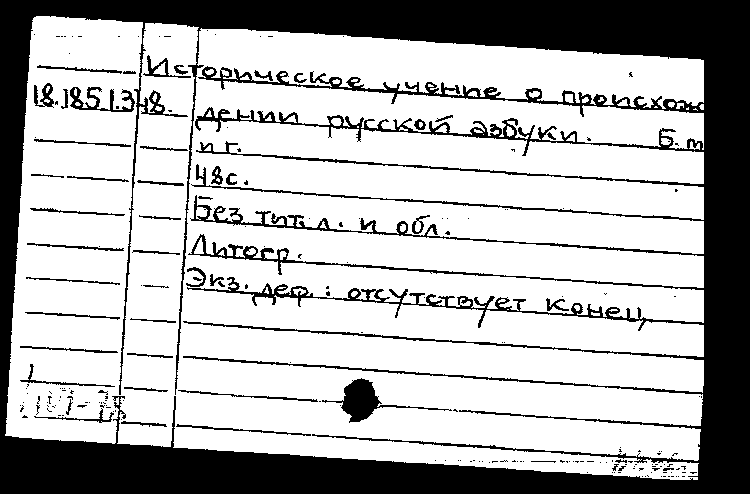 Историческое учение о происхож
18.185.1.348.
дении русской азбуки. Б. м
и г.
48с.
Без тит. л. и обл.
Литогр.
Экз. деф.: отсутствует конец